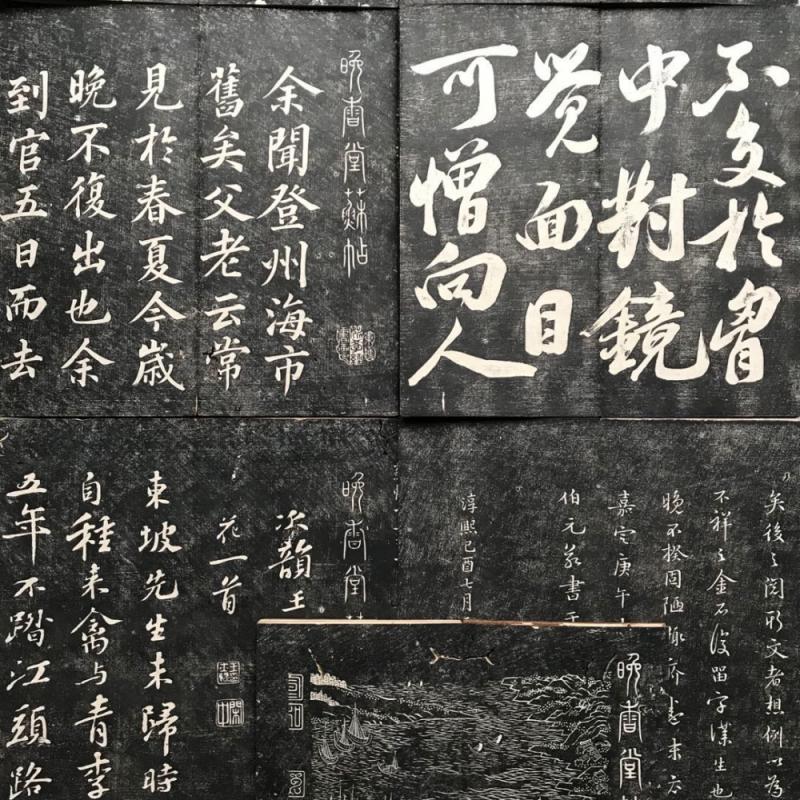 晚香堂蘇帖
余聞登州海市
舊矣父老云常
見於春夏今歲
晚不復出也余
到官五日而去
不交於胷
中對鏡
覺面目
可憎向人
晚香堂
次韻王
花一首
東坡先生未歸時
自種来禽与青李
五年不踏江頭路
矣後之閲斯文者想例以為
不祥之金石後留字漢生也
晚不揆固陋
嘉定庚午
伯元敬書于
淳熙己酉七月
晚香堂